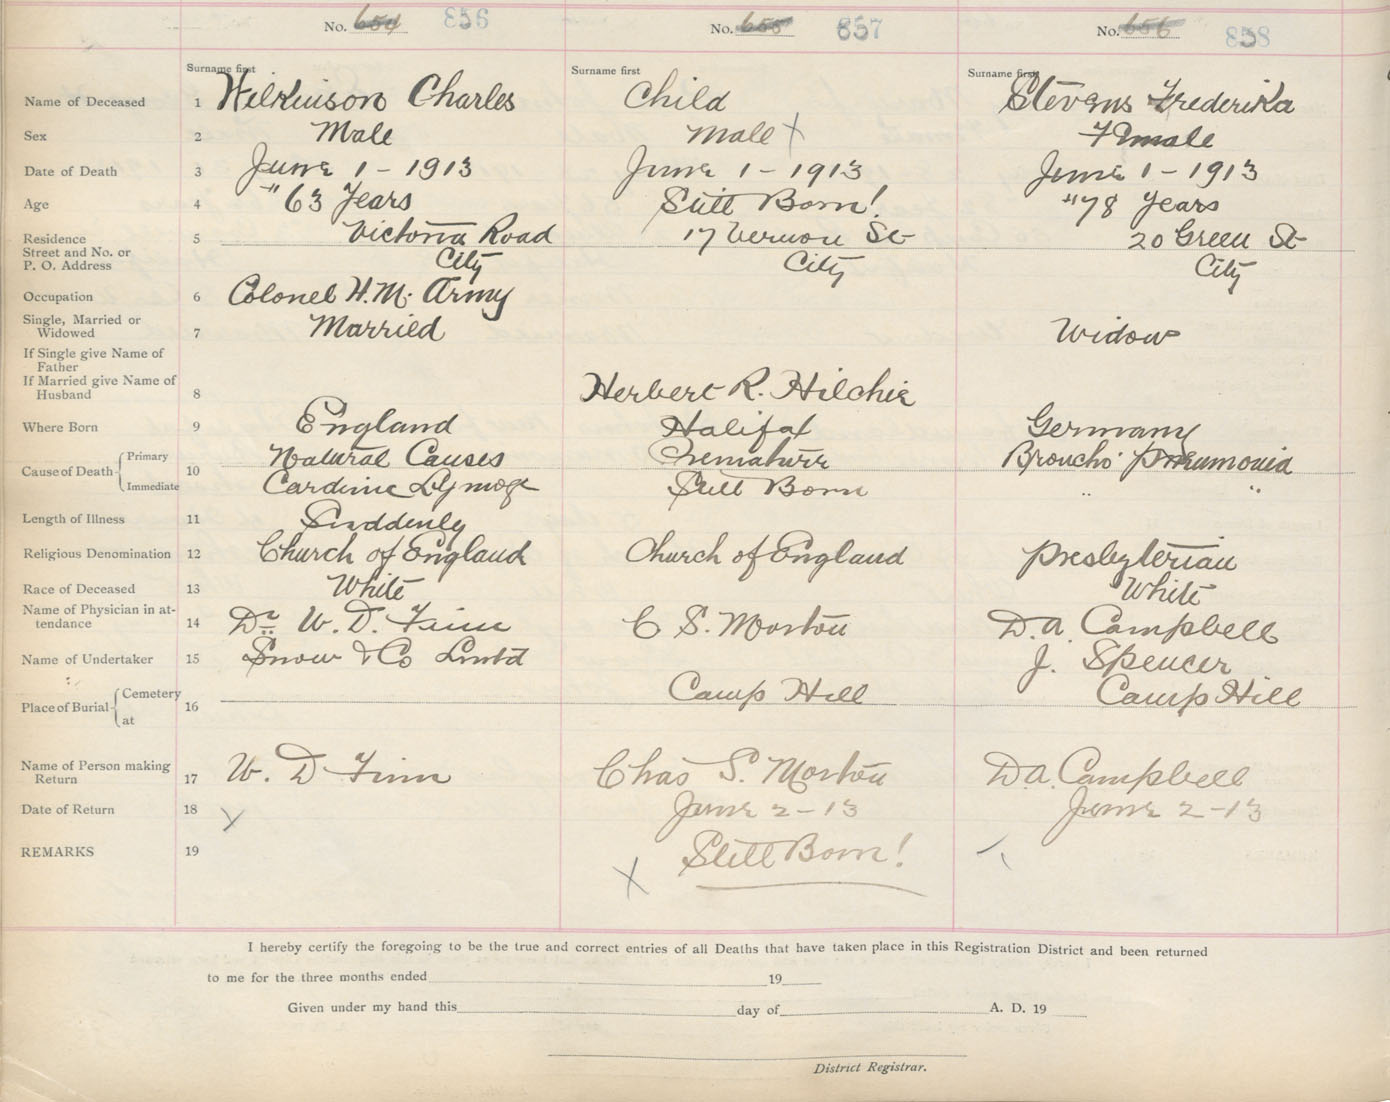 No. 654 856
No. 655 857
No. 656 858
Surname first
Surname first
Surname first
Name of Deceased 1 Wilkinson Charles Child Stevens Frederika
Sex 2 Male Male X Female
Date of Death 3 June 1 - 1913 June 1 - 1913 June 1 - 1913
Age 4 " 63 Years Still Born! " 78 Years
Residence 5 Victoria Road 17 Vernon St 20 Green St
Street and No. or
P. O. Address City City City
Occupation 6 Colonel H. M. Army
Single, Married or
Widowed 7 Married Widow
If Single give Name of
Father
If Married give Name of
Husband 8 Herbert R. Hilchie
Where Born 9 England Halifax Germany
Cause of Death 10 Primary Natural Causes Premature Broncho Pneumonia
Immediate Cardiac Still Born " "
Length of Illness 11 Suddenly
Religious Denomination 12 Church of England Church of England Presbyterian
Race of Deceased 13 White White
Name of Physician in at-
tendance 14 Dr. W. D. Finn C S. Morton D. A. Campbell
Name of Undertaker 15 Snow & Co Lmtd J. Spencer
Place of Burial 16 Cemetery Camp Hill Camp Hill
at
Name of Person making
Return 17 W. D Finn Chas S. Morton D. A. Campbell
Date of Return 18 June 2 - 13 June 2 - 13
REMARKS 19 X Still Born!
I hereby certify the foregoing to be the true and correct entries of all Deaths that have taken place in this Registration District and been returned
to me for the three months ended 19
Given under my hand this day of A. D. 19
District Registrar.